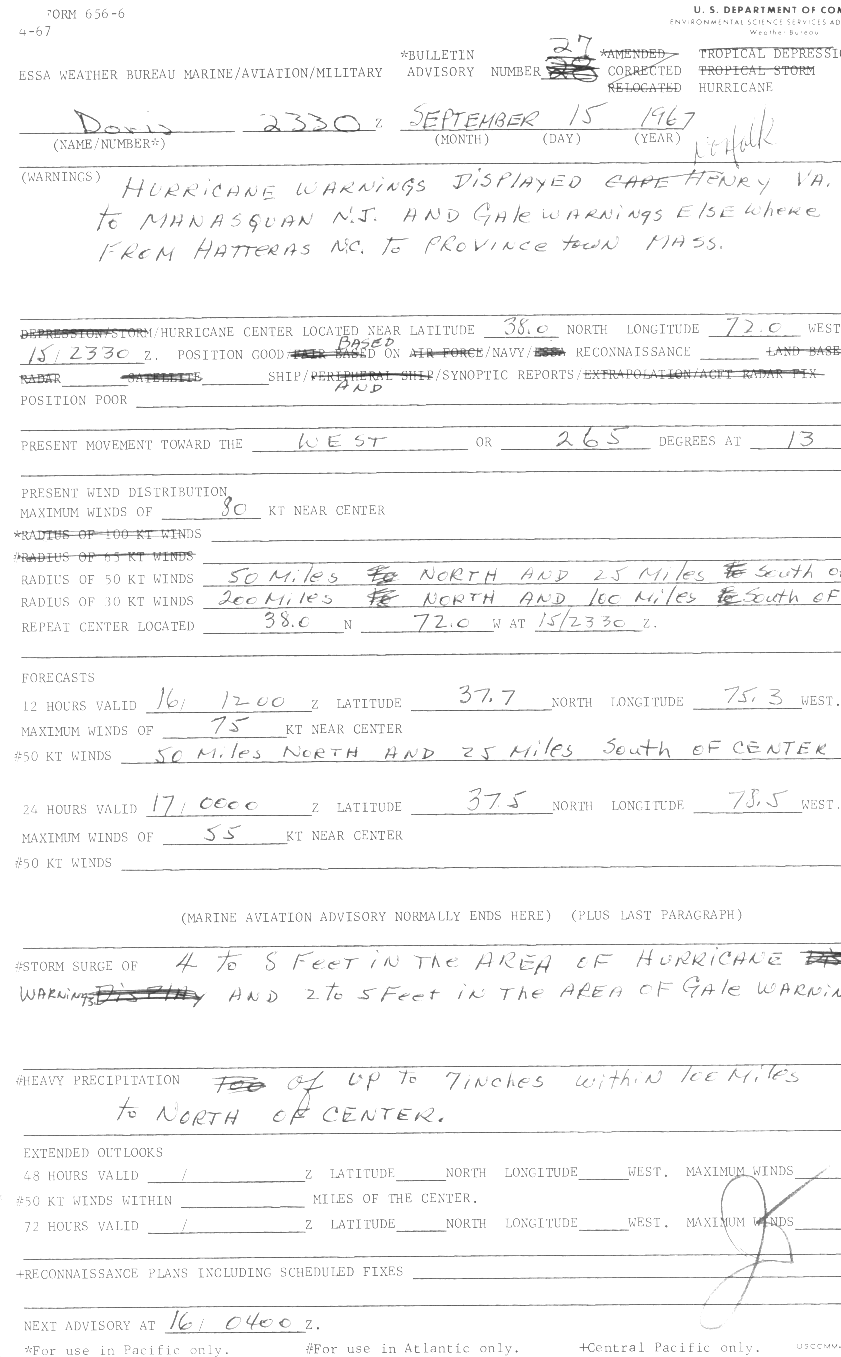 FORM 656-6
4-67
U. S. DEPARTMENT OF COM
ENVIRONMENTAL SCIENCE SERVICES AD
Weather Bureau
27
*BULLETIN *AMENDED TROPICAL DEPRESSIO
ESSA WEATHER BUREAU MARINE/AVIATION/MILITARY ADVISORY NUMBER CORRECTED TROPICAL STORM
RELOCATED HURRICANE
Doris 2330 Z SEPTEMBER 15 1967
(NAME/NUMBER*) (MONTH) (DAY) (YEAR)
(WARNINGS) HURRICANE WARNINGS DISPLAYED CAPE HENRY VA.
to MANASQUAN N.J. AND GAle WARNINGS ELSEWhere
FROM HATTERAS N.C. to PROVINCE town MASS.
DEPRESSION/STORM/HURRICANE CENTER LOCATED NEAR LATITUDE 38.0 NORTH LONGITUDE 72.0 WEST
BASED
15/2330 Z. POSITION GOOD/FAIR BASED ON AIR FORCE/NAVY/ESSA RECONNAISSANCE LAND BASE
RADAR SATELLITE SHIP/PERIPHERAL SHIP/SYNOPTIC REPORTS/EXTRAPOLATION/ACFT RADAR FIX
AND
POSITION POOR
PRESENT MOVEMENT TOWARD THE WEST OR 265 DEGREES AT 13
PRESENT WIND DISTRIBUTION
MAXIMUM WINDS OF 80 KT NEAR CENTER
*RADIUS OF 100 KT WINDS
#RADIUS OF 65 KT WINDS
RADIUS OF 50 KT WINDS 50 Miles to NORTH AND 25 Miles to South O
RADIUS OF 30 KT WINDS 200 Miles to NORTH AND 100 Miles to South OF
REPEAT CENTER LOCATED 38.0 N 72.0 W AT 15/2330 Z.
FORECASTS
12 HOURS VALID 16/ 1200 Z LATITUDE 37.7 NORTH LONGITUDE 75.3 WEST.
MAXIMUM WINDS OF 75 KT NEAR CENTER
#50 KT WINDS 50 Miles NORTH AND 25 Miles South OF CENTER
24 HOURS VALID 17/ 0000 Z LATITUDE 37.5 NORTH LONGITUDE 78.5 WEST.
MAXIMUM WINDS OF 55 KT NEAR CENTER
#50 KT WINDS
(MARINE AVIATION ADVISORY NORMALLY ENDS HERE) (PLUS LAST PARAGRAPH)
#STORM SURGE OF 4 to 8 Feet IN The AREA OF HURRICANE
WARNINGS DISPLAY AND 2 to 5 Feet in The AREA OF GAle WARNIN
#HEAVY PRECIPITATION of UP to 7 inches within 100 Miles
to NORTH OF CENTER.
EXTENDED OUTLOOKS
48 HOURS VALID / Z LATITUDE NORTH LONGITUDE WEST. MAXIMUM WINDS
#50 KT WINDS WITHIN MILES OF THE CENTER.
72 HOURS VALID / Z LATITUDE NORTH LONGITUDE WEST. MAXIMUM WINDS
+RECONNAISSANCE PLANS INCLUDING SCHEDULED FIXES
NEXT ADVISORY AT 16/ 0400 Z.
*For use in Pacific only. #For use in Atlantic only. +Central Pacific only. USCCMM